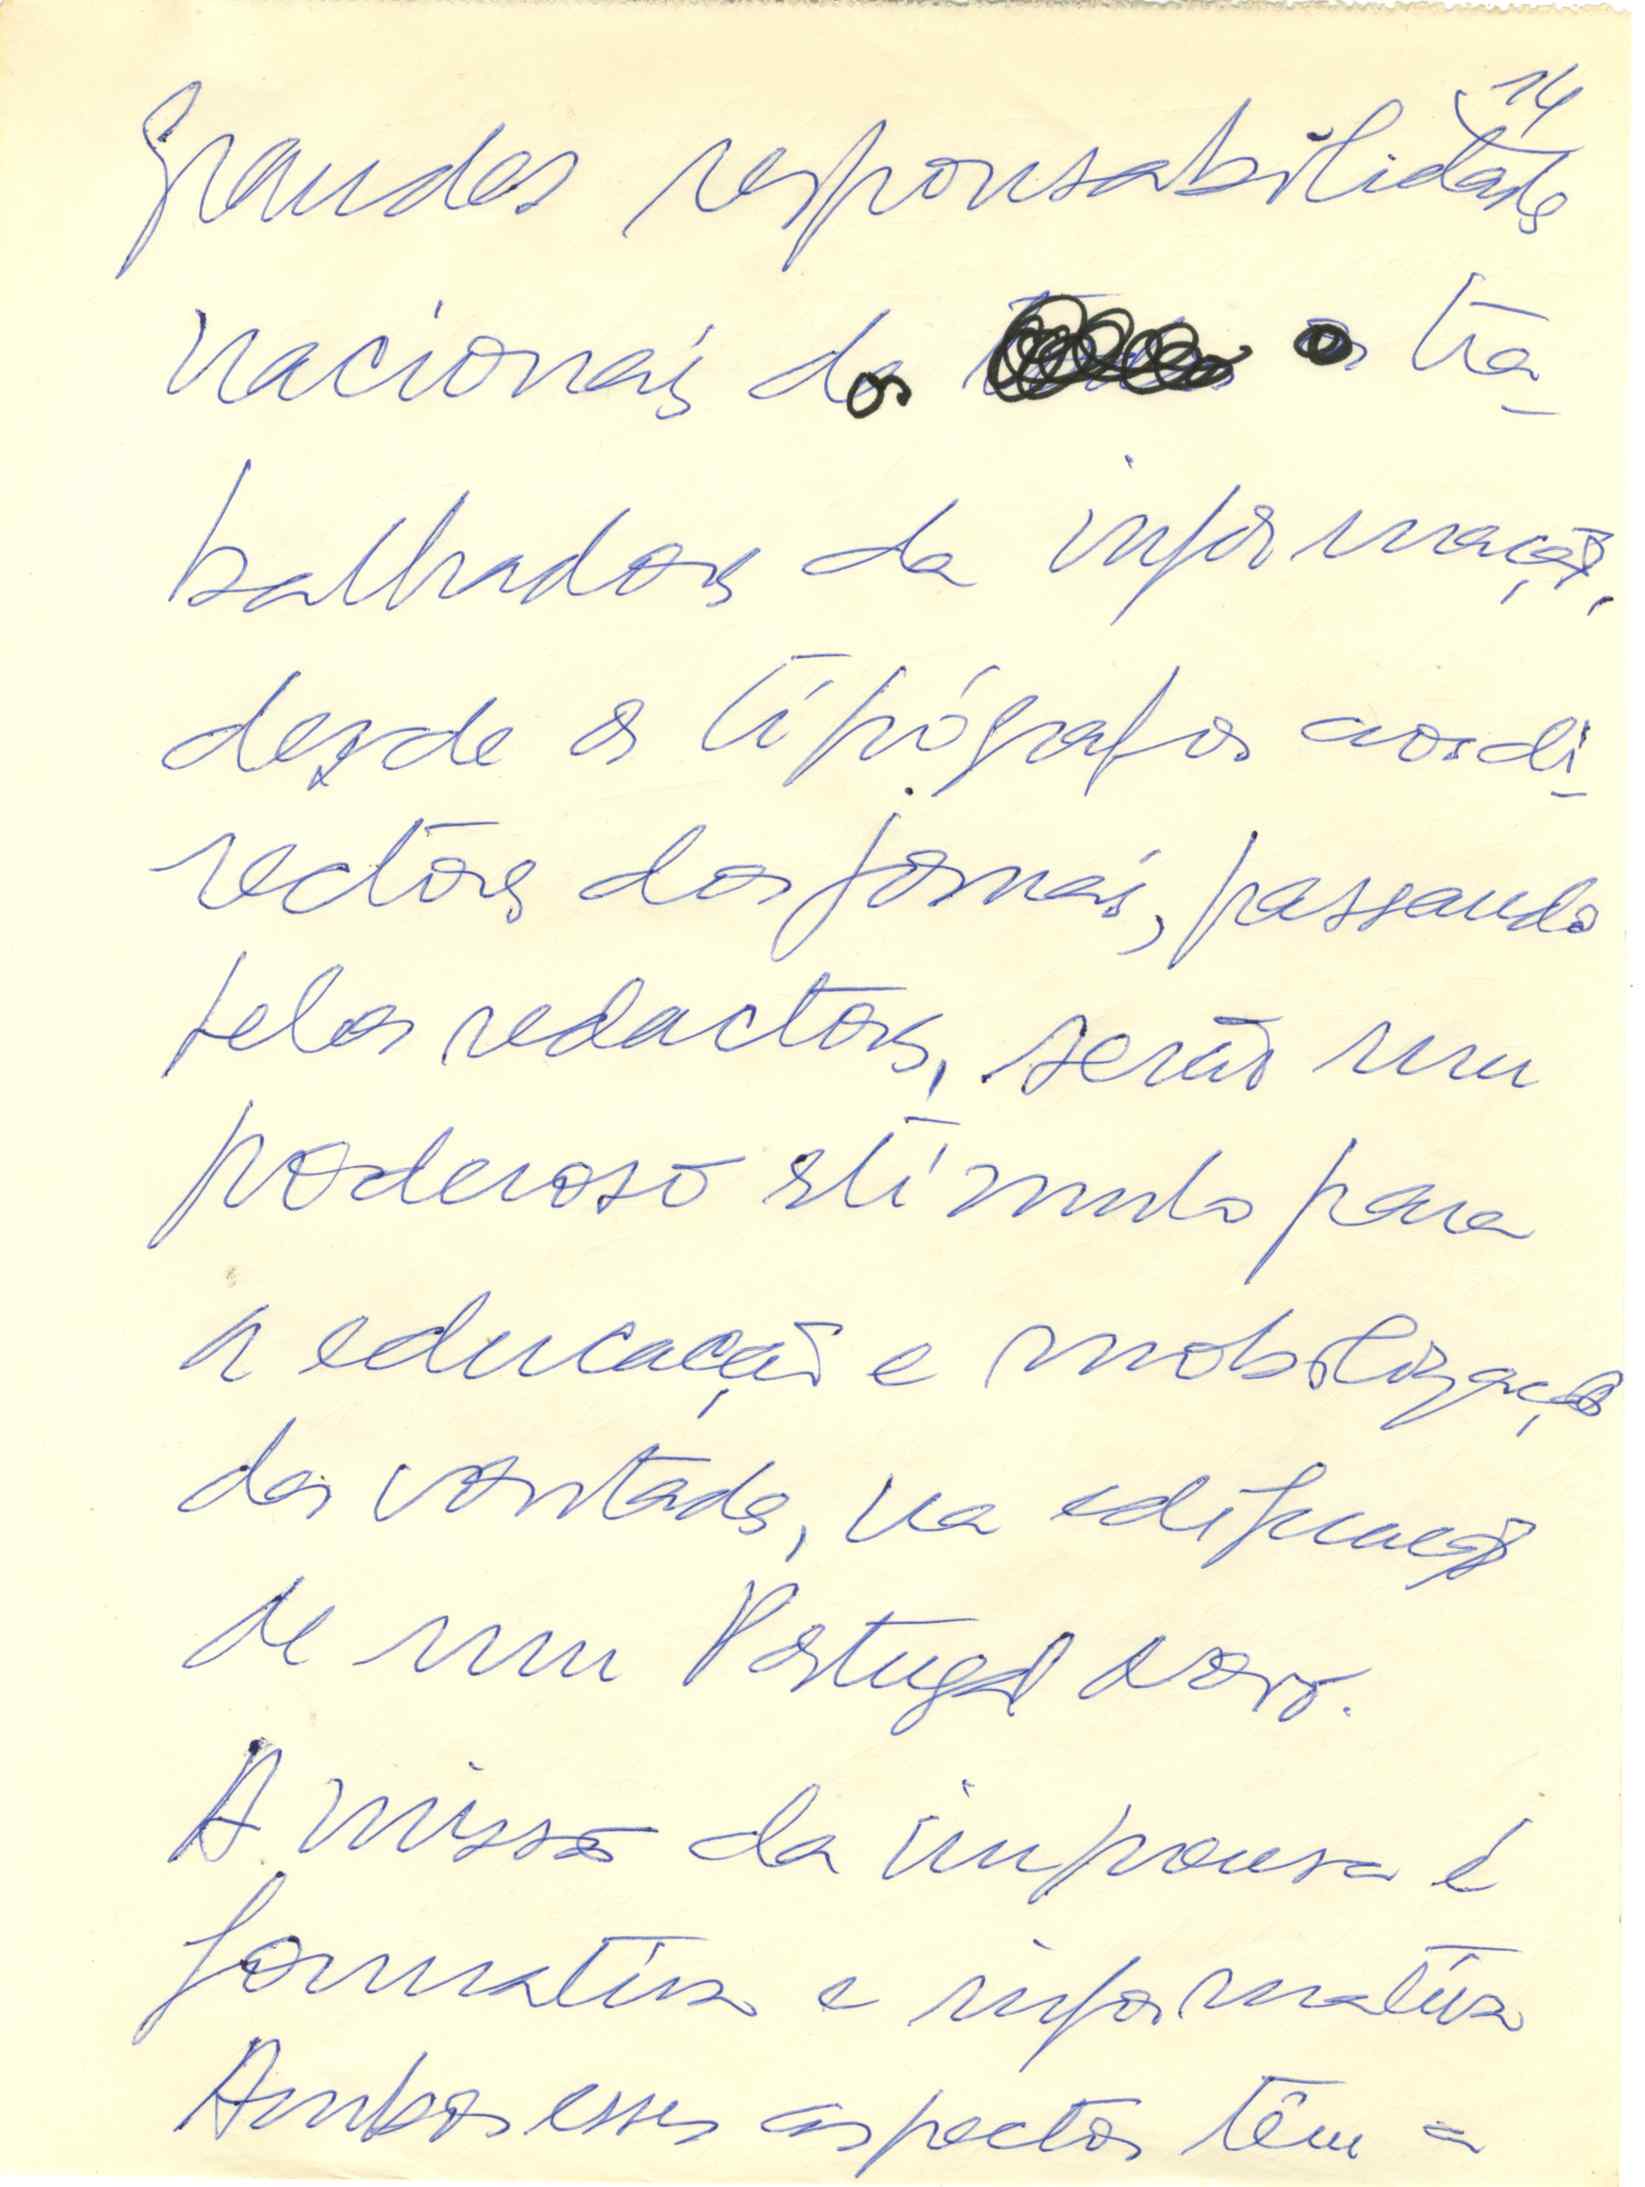 14
Grandes responsabilidades
nacionais dos tra-
balhadores da informação,
desde os tipógrafos aos di-
rectores dos jornais, passando
pelos redactores, serão um
poderoso estímulo para
a educação e mobilização
das vontades, na edificação
de um Portugal novo.
A missão da imprensa é
formativa e informativa
Ambos esses aspectos têm =